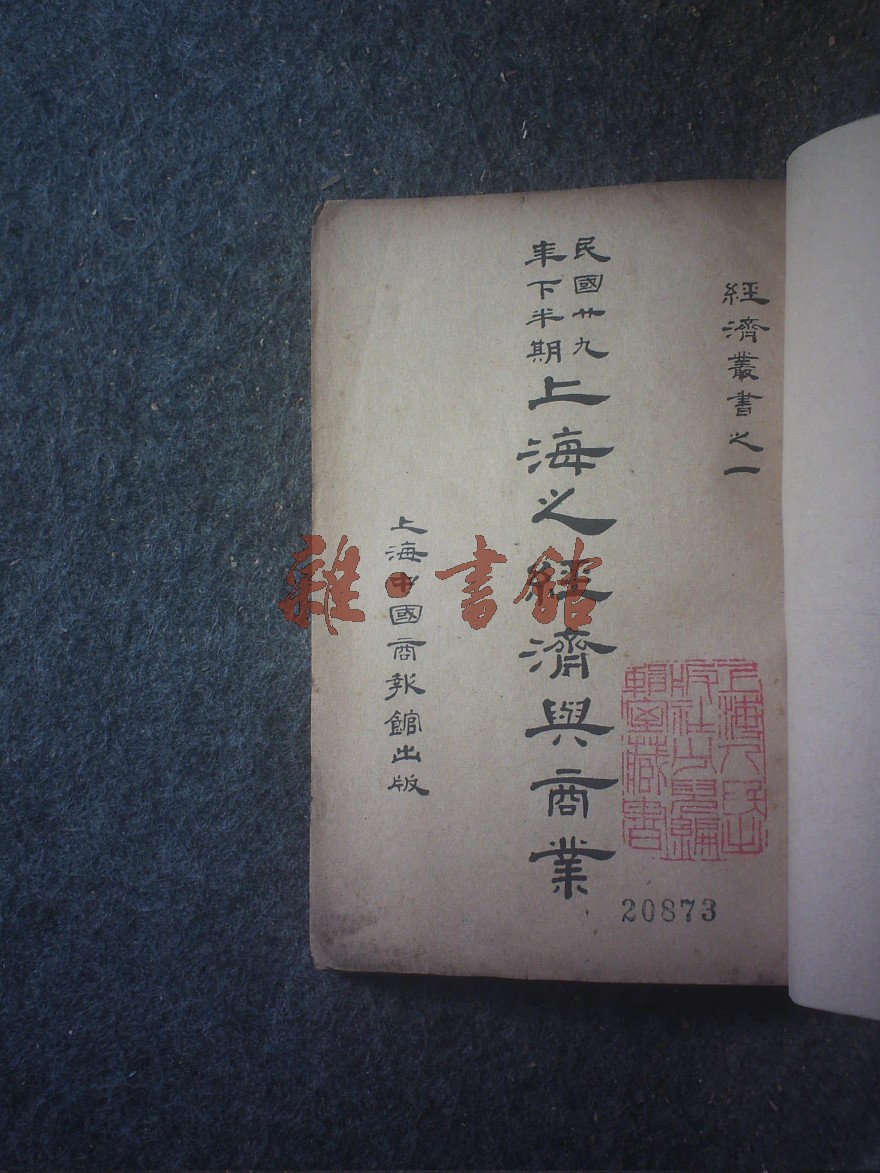 經濟叢書之一
民國廿九
年下半期
上海之經濟與商業
上海中國商報館出版
上海人民出
版社出門編
輯室藏書
20873
雜·書館